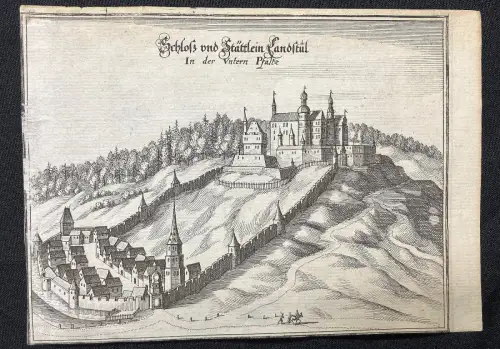 Schloß vnd Stättlein Landstül
In der Vntern Pfaltz